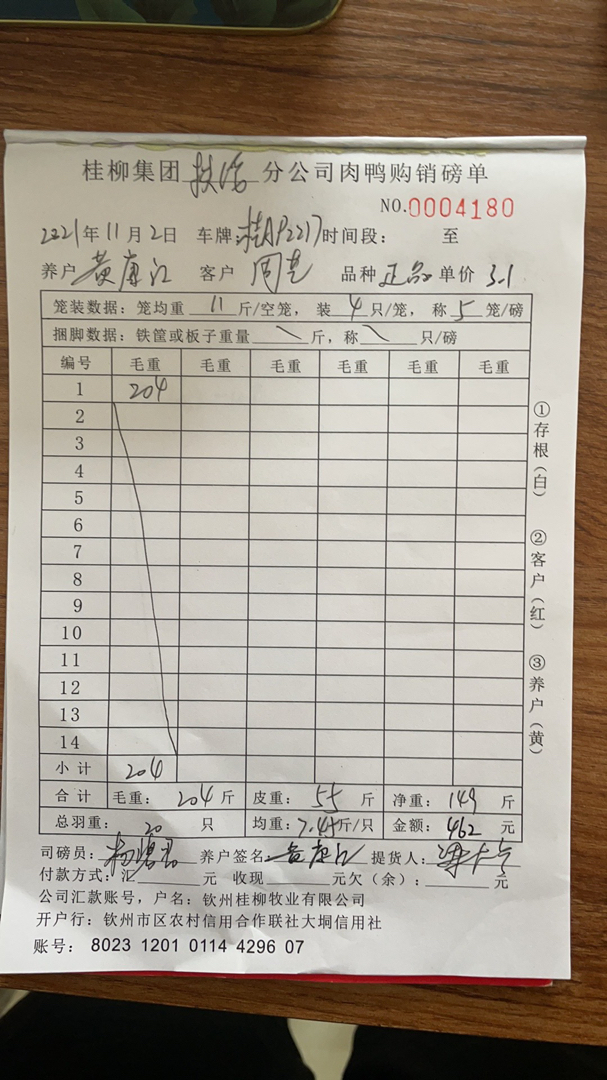 桂柳集团 扶绥 分公司肉鸭购销磅单
NO.0004180
2021年11月2日 车牌:桂AP2217 时间段: 至
养户 黄康江 客户 周 品种 正品 单价 3.1
笼装数据:笼均重 11 斤/空笼,装 4 只/笼,称 5 笼/磅
捆脚数据:铁筐或板子重量 \ 斤,称 \ 只/磅
编号 毛重 毛重 毛重 毛重 毛重 毛重
1 204
2
3
4
5
6
7
8
9
10
11
12
13
14
小计 204
合计 毛重: 204 斤 皮重: 55 斤 净重: 149 斤
总羽重: 20 只 均重: 7.45 斤/只 金额: 462 元
司磅员: 养户签名 黄康江 提货人:
付款方式:汇 元 收现 元欠(余): 元
公司汇款账号,户名:钦州桂柳牧业有限公司
开户行:钦州市区农村信用合作联社大垌信用社
账号: 8023 1201 0114 4296 07
①存根(白)
②客户(红)
③养户(黄)